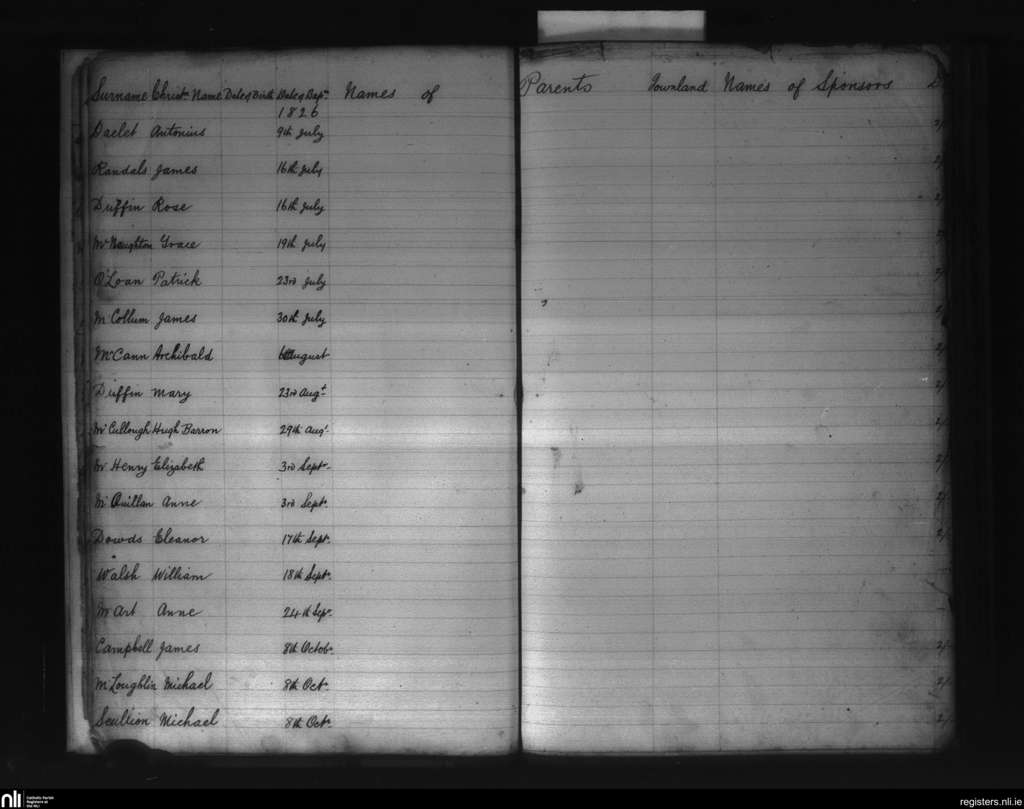 Surname Christn Name Date of Birth Date of Bapn Names of Parents Townland Names of Sponsors
1826
Daelet Antonius 9th July
Randals James 16th July
Duffin Rose 16th July
McNaughton Grace 19th July
O'Loan Patrick 23rd July
McCollum James 30th July
McCann Archibald 6 August
Duffin Mary 23rd Augt
McCullough Hugh Barron 29th Augt
McHenry Elizabeth 3rd Sept
McQuillan Anne 3rd Sept
Dowds Eleanor 17th Sept
Walsh William 18th Sept
McArt Anne 24th Sep
Campbell James 8th Octobr
McLoughlin Michael 8th Oct
Scullion Michael 8th Oct
nli Catholic Parish Registers at the NLI
registers.nli.ie